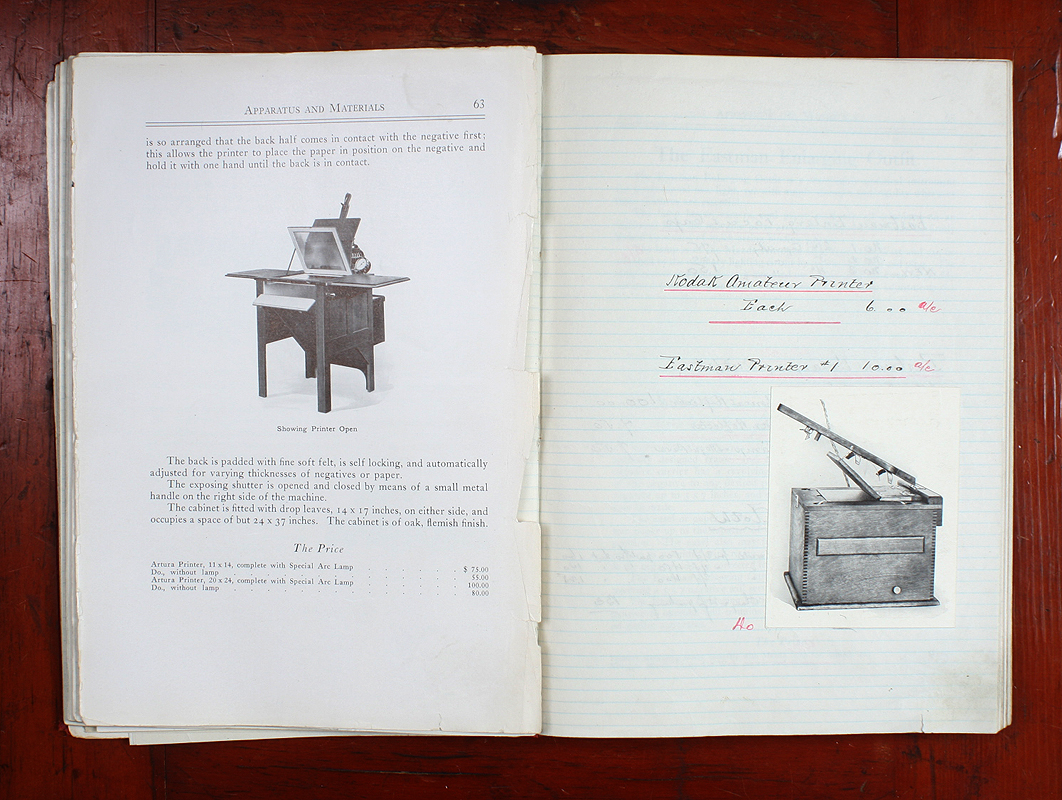 APPARATUS AND MATERIALS 63
is so arranged that the back half comes in contact with the negative first;
this allows the printer to place the paper in position on the negative and
hold it with one hand until the back is in contact.
Showing Printer Open
The back is padded with fine soft felt, is self locking, and automatically
adjusted for varying thicknesses of negatives or paper.
The exposing shutter is opened and closed by means of a small metal
handle on the right side of the machine.
The cabinet is fitted with drop leaves, 14 x 17 inches, on either side, and
occupies a space of but 24 x 37 inches. The cabinet is of oak, flemish finish.
The Price
Artura Printer, 11 x 14, complete with Special Arc Lamp . . . . . . . $ 75.00
Do., without lamp . . . . . . . . . . 55.00
Artura Printer, 20 x 24, complete with Special Arc Lamp . . . . . . . 100.00
Do., without lamp . . . . . . . . . . 80.00
Kodak Amateur Printer
Each 6.00 a/c
Eastman Printer #1 10.00 a/c